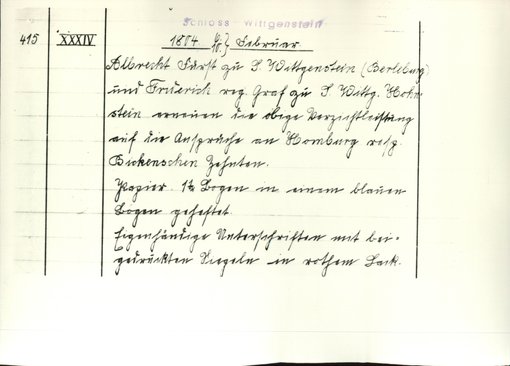 Schloss Wittgenstein
415 XXXIV 1804 6./10.} Februar
Albrecht Fürst zu S. Wittgenstein (Berleburg)
und Friederich reg. Graf zu S. Wittg. Hohn-
stein erneuen die obige Verzichtleistung
auf die Ansprüche an Homburg resp.
Bickenschen Zehnten.
Papier. 1½ Bogen in einem blauen
Bogen geheftet.
Eigenhändige Unterschriften mit bei-
gedrückten Siegeln in rothem Lack.